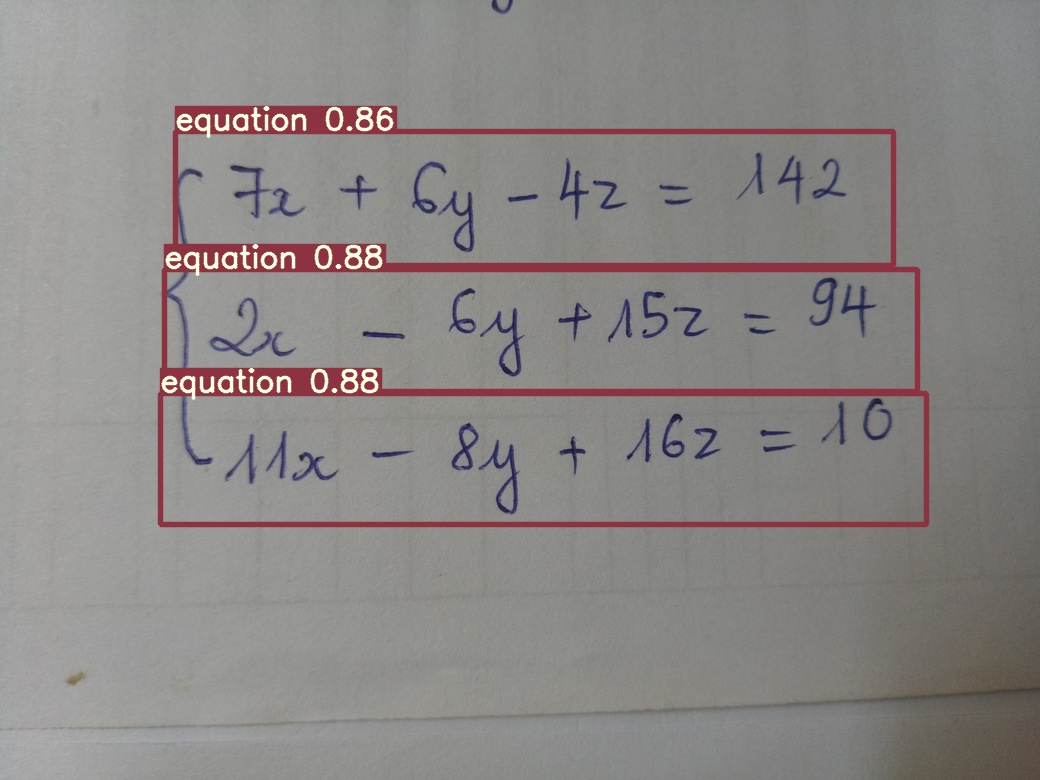 equation 0.86
7x + 6y - 4z = 142
equation 0.88
2x - 6y + 15z = 94
equation 0.88
11x - 8y + 16z = 10